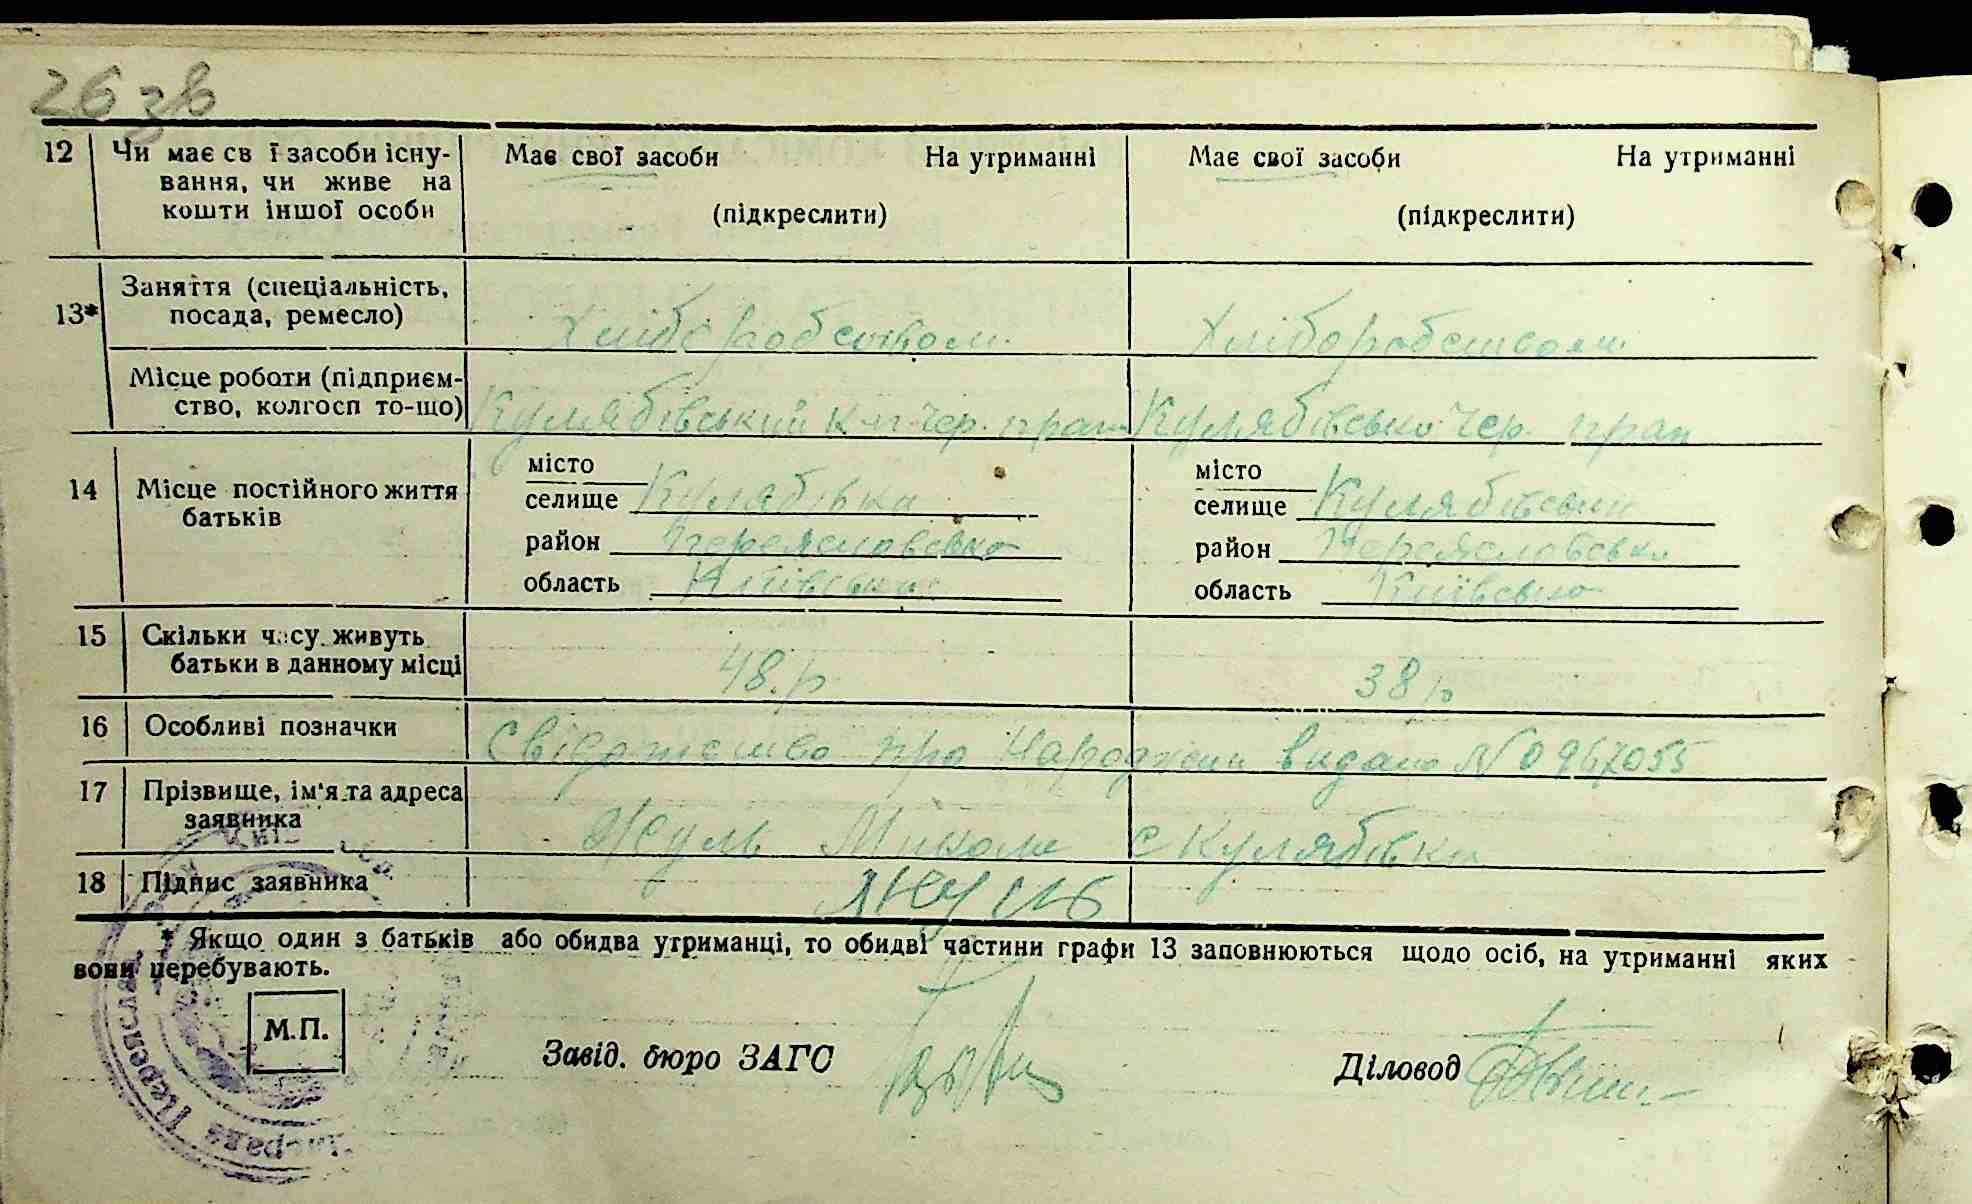 26 зв
12 Чи має св ї засоби існу- Має свої засоби На утриманні Має свої засоби На утриманні
вання, чи живе на
кошти іншої особи (підкреслити) (підкреслити)
Заняття (спеціальність,
13* посада, ремесло) Хліборобством Хліборобством
Місце роботи (підприєм-
ство, колгосп то-що) Кулябівський к-п Чер. прап Кулябівсько Чер. прап
місто місто
14 Місце постійного життя селище Кулябівка селище Кулябівський
батьків район Переяславсько район Переяславсько
область Київська область Київсько
15 Скільки часу живуть
батьки в данному місці 48.р 38 р
16 Особливі позначки Свідотство про Народжени видано № 0967055
17 Прізвище, ім'я та адреса
заявника Жуль Микола с Кулябівка
18 Підпис заявника Жуль
* Якщо один з батьків або обидва утриманці, то обидві частини графи 13 заповнюються щодо осіб, на утриманні яких
вони перебувають.
М.П.
Завід. бюро ЗАГС Діловод